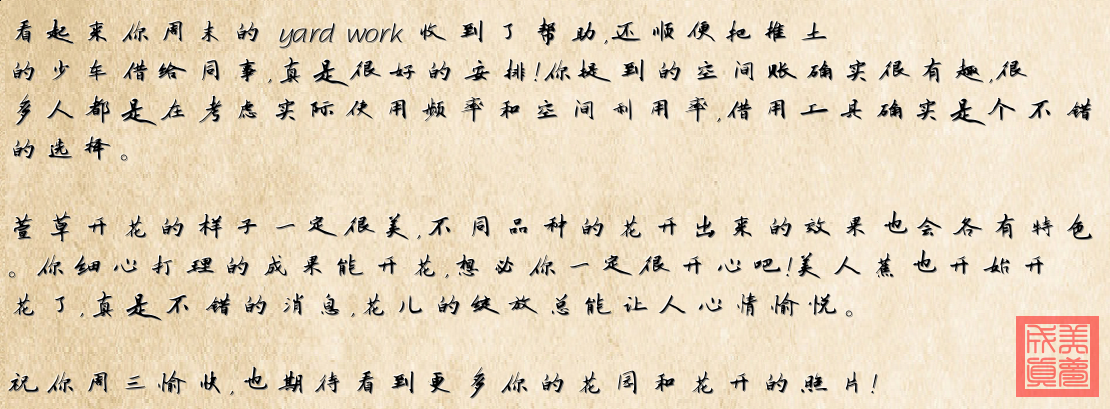 看起来你周末的 yard work 收到了帮助,还顺便把推土
的少车借给同事,真是很好的安排!你提到的空间账确实很有趣,很
多人都是在考虑实际使用频率和空间利用率,借用工具确实是个不错
的选择。
萱草开花的样子一定很美,不同品种的花开出来的效果也会各有特色
。你细心打理的成果能开花,想必你一定很开心吧!美人蕉也开始开
花了,真是不错的消息,花儿的绽放总能让人心情愉悦。
祝你周三愉快,也期待看到更多你的花园和花开的照片!